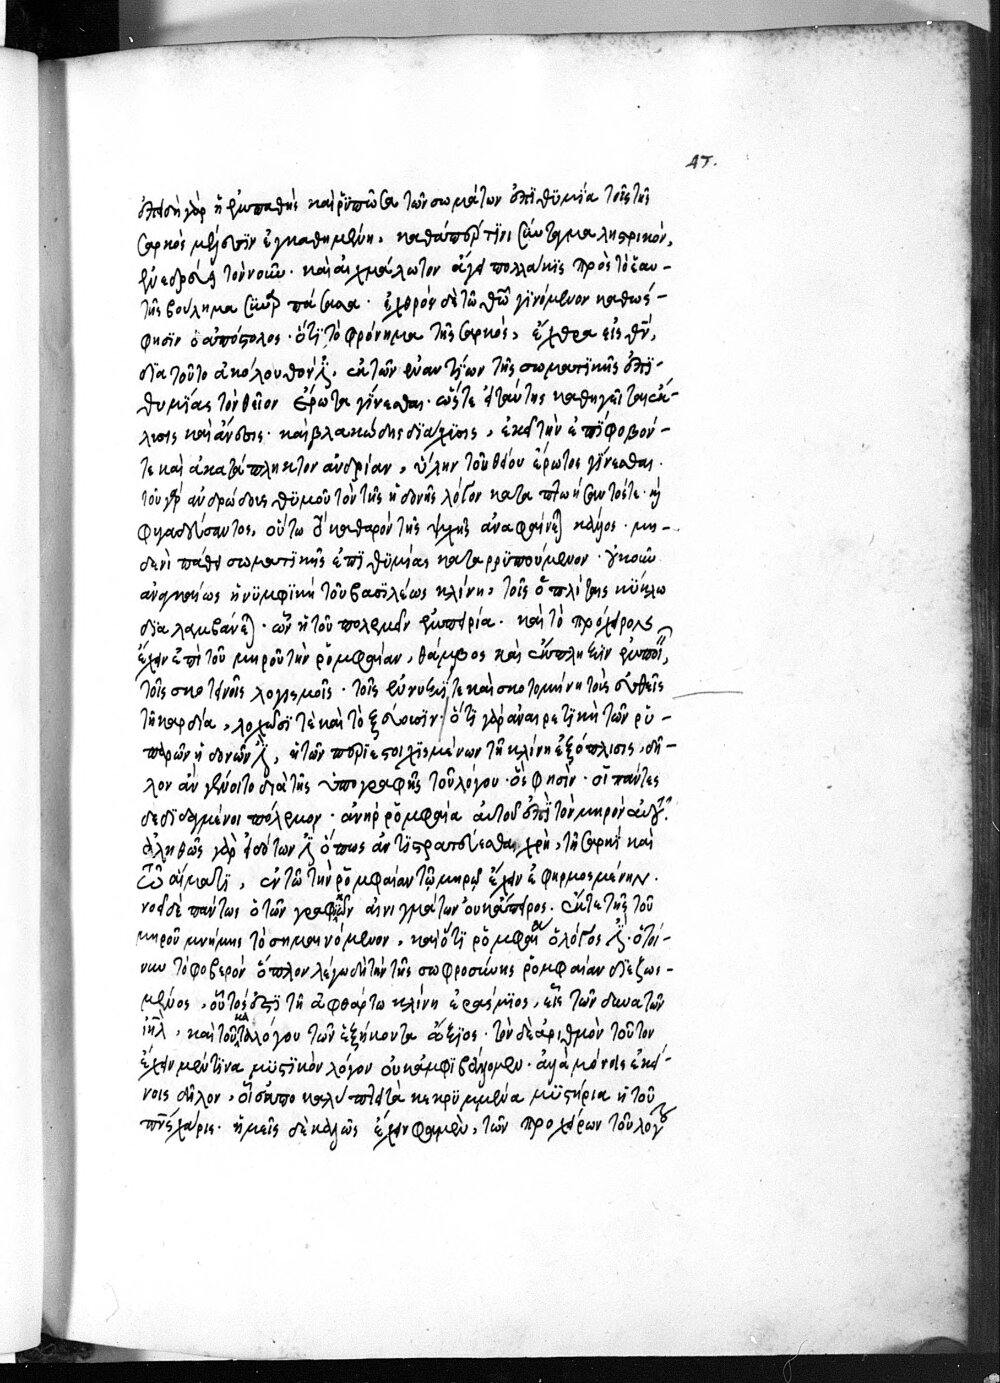 47.
ἐπειδὴ γὰρ ἡ ἐμπαθὴς καὶ ῥυπῶσα τῶν σωμάτων ἐπιθυμία τοῖς τῆς
σαρκὸς μέλεσιν ἐγκαθημένη, καθάπερ τι σύνταγμα ληστρικὸν,
ἐνεδρεύει τὸν νοῦν. καὶ αἰχμάλωτον ἄγει πολλάκις πρὸς τὸ ἑαυ-
τῆς βούλημα συναρπάσασα. ἐχθρὸν δὲ τῶ θῶ γινόμενον καθώς-
φησιν ὁ ἀπόστολος. ὅτι τὸ φρόνημα τῆς σαρκὸς, ἔχθρα εἰς θν,
διὰ τοῦτο ἀκόλουθόν ἐστι, ἐκ τῶν ἐναντίων τῆς σωματικῆς ἐπι-
θυμίας τὸν θεῖον ἔρωτα γίνεσθαι. ὥστε εἰ ταύτης καθηγεῖται ἔκ-
λυσις καὶ ἄνεσις. καὶ βλακώδης διάχυσις, ἐκεῖ τὴν ἐπίφοβόν-
τε καὶ ἀκατάπληκτον ἀνδρίαν, ὕλην τοῦ θείου ἔρωτος γίνεσθαι.
τοῦ γὰρ ἀνδρώδους θυμοῦ τὸν τῆς ἡδονῆς λόχον καταπτωήσαντός τε. κὶ
φυγαδεύσαντος, οὕτω τὸ καθαρὸν τῆς ψυχῆς ἀναφαίνεται κάλλος. μη-
δενὶ πάθει σωματικῆς ἐπιθυμίας καταρρυπούμενον. οὐκοῦν
ἀναγκαίως ἡ νυμφικὴ τοῦ βασιλέως κλίνη, τοῖς ὁπλίταις κύκλω
διαλαμβάνεται. ὧν ἡ τοῦ πολεμεῖν ἐμπειρία. καὶ τὸ πρόχειρον
ἔχειν ἐπὶ τοῦ μηροῦ τὴν ῥομφαίαν, θάμβος καὶ ἔκπληξιν ἐμποιεῖ,
τοῖς σκοτεινοῖς λογισμοῖς. τοῖς ἐν νυξί τε καὶ σκοτομήνη τοὺς εὐθεῖς
τῆ καρδία, λοχῶσί τε καὶ τοξεύουσιν. ὅτι γὰρ ἀναιρετικὴ τῶν ῥυ-
παρῶν ἡδονῶν ἐστι, ἡ τῶν περιεστοιχισμένων τὴ κλίνη ἐξόπλισις, δῆ-
λον ἂν γένοιτο διὰ τῆς ὑπογραφῆς τοῦ λόγου. ὅς φησὶν. οἱ πάντες
δεδιδαγμένοι πόλεμον. ἀνὴρ ῥομφαία αὐτοῦ ἐπὶ τὸν μηρὸν αὐτοῦ.
ἀληθῶς γὰρ εἰδότων ἐστι ὅπως ἀντιστρατεύεσθαι χρὴ, τῆ σαρκὶ καὶ
τῶ αἵματι, ἐν τῶ τὴν ῥομφαίαν τῶ μηρῶ ἔχειν ἐφηρμοσμένην.
νοεῖ δὲ πάντως ὁ τῶν γραφικῶν αἰνιγμάτων οὐκ ἄπειρος. ἔκ τε τῆς τοῦ
μηροῦ μνήμης τὸ σημαινόμενον, καὶ ὅτι ῥομφαία ὁ λόγος ἐστι. ὁ τοί-
νυν τὸ φοβερὸν ὅπλον λέγω δὴ τὴν τῆς σωφροσύνης ῥομφαίαν διεζωσ-
μένος, οὗτός ἐστι τῆ ἀφθάρτω κλίνη ἐράσμιος, εἷς τῶν δυνατῶν
ιηλ, καὶ τοῦ καταλόγου τῶν ἑξήκοντα ἄξιος. τὸν δὲ ἀριθμὸν τοῦτον
ἔχειν μέν τινα μυστικὸν λόγον οὐκ ἀμφιβάλλομεν. ἀλλὰ μόνοις ἐκεί-
νοις δῆλον, οἷς ἀποκαλύπτει τὰ κεκρυμμένα μυστήρια ἡ τοῦ
πνς χάρις. ἡμεῖς δὲ καλῶς ἔχειν φαμὲν, τῶν προχείρων τοῦ λόγου